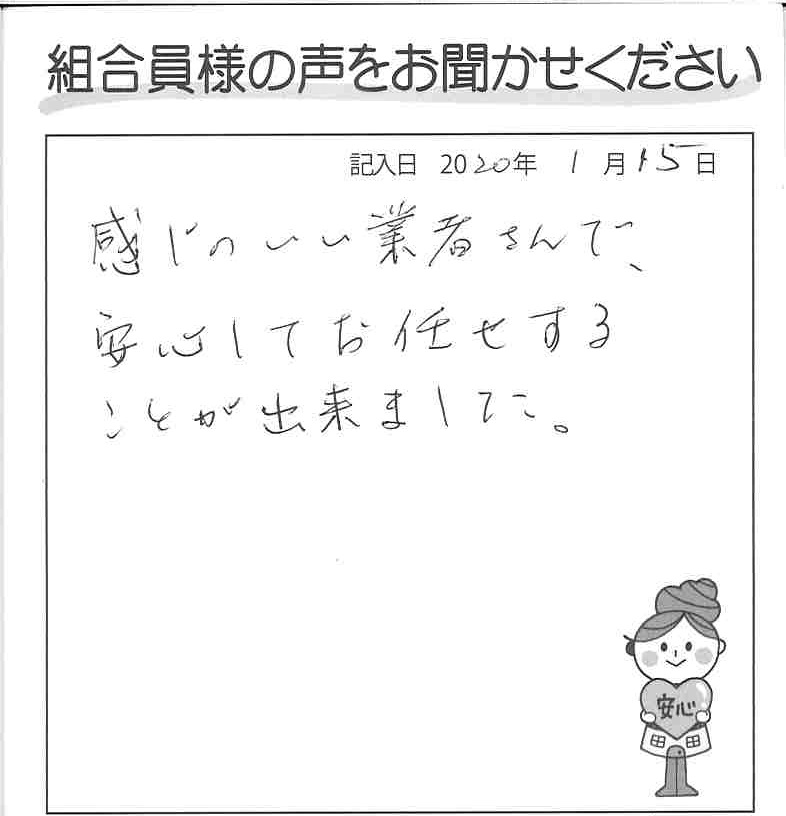 組合員様の声をお聞かせください
記入日 2020年 1月15日
感じのいい業者さんで、
安心してお任せする
ことが出来ました。
安心